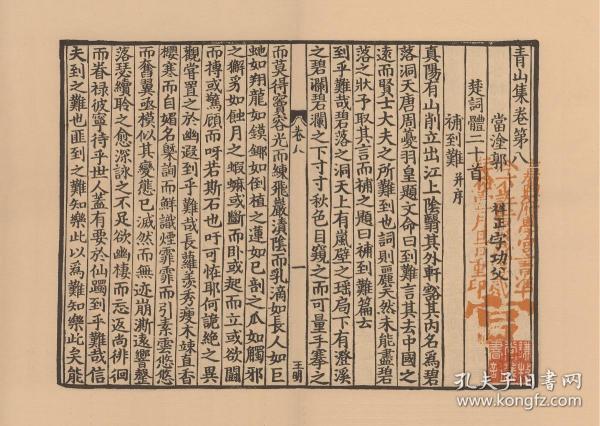 青山集卷第八
當塗郭　祥正字功父
楚詞體二十首
補到難 并序
真陽有山削立出江上陰翳其外軒豁其內名爲碧
落洞天唐周夔羽皇題文命曰到難言其去中國之
遠而賢士大夫之所難到也詞則麗矣然未能盡碧
落之狀予取其言而補之題曰補到難篇云
到乎難哉碧落之洞天上有嵐壁之瑤局下有澄溪
之碧瀾碧瀾之下寸寸秋色目鏡之而可量手搴之
卷八
一
王明
而莫得竇容光而練飛巖漬陰而乳滴如長人如巨
虵如翔龍如鏌鎁如倒植之蓮如已剖之瓜如觸邪
之獬豸如蝕月之蝦蟆或斷而臥或起而立或欲鬭
而摶或驚顧而呀若斯石也吁可恠耶何詭絶之異
觀嘗置之於幽遐到乎難哉長蘿羨秀瘦木竦直香
櫻寒而自媚名槩詢而鮮識煙霏霏而引素雲悠悠
而奮翼亟模似其變態已滅然而無迹崩澌遠響磬
落瑟續聆之愈深詠之不足欲幽棲而忘返尚徘徊
而眷祿彼寧待乎世人蓋有要於仙躅到乎難哉信
夫到之難也匪到之難知樂此以爲難知樂此矣能
孔夫子旧书网
www.kongfz.com